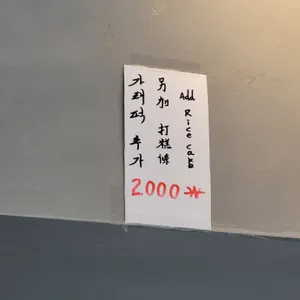 가래떡 추가
另加 打糕條
Add Rice Cake
2000 ₩